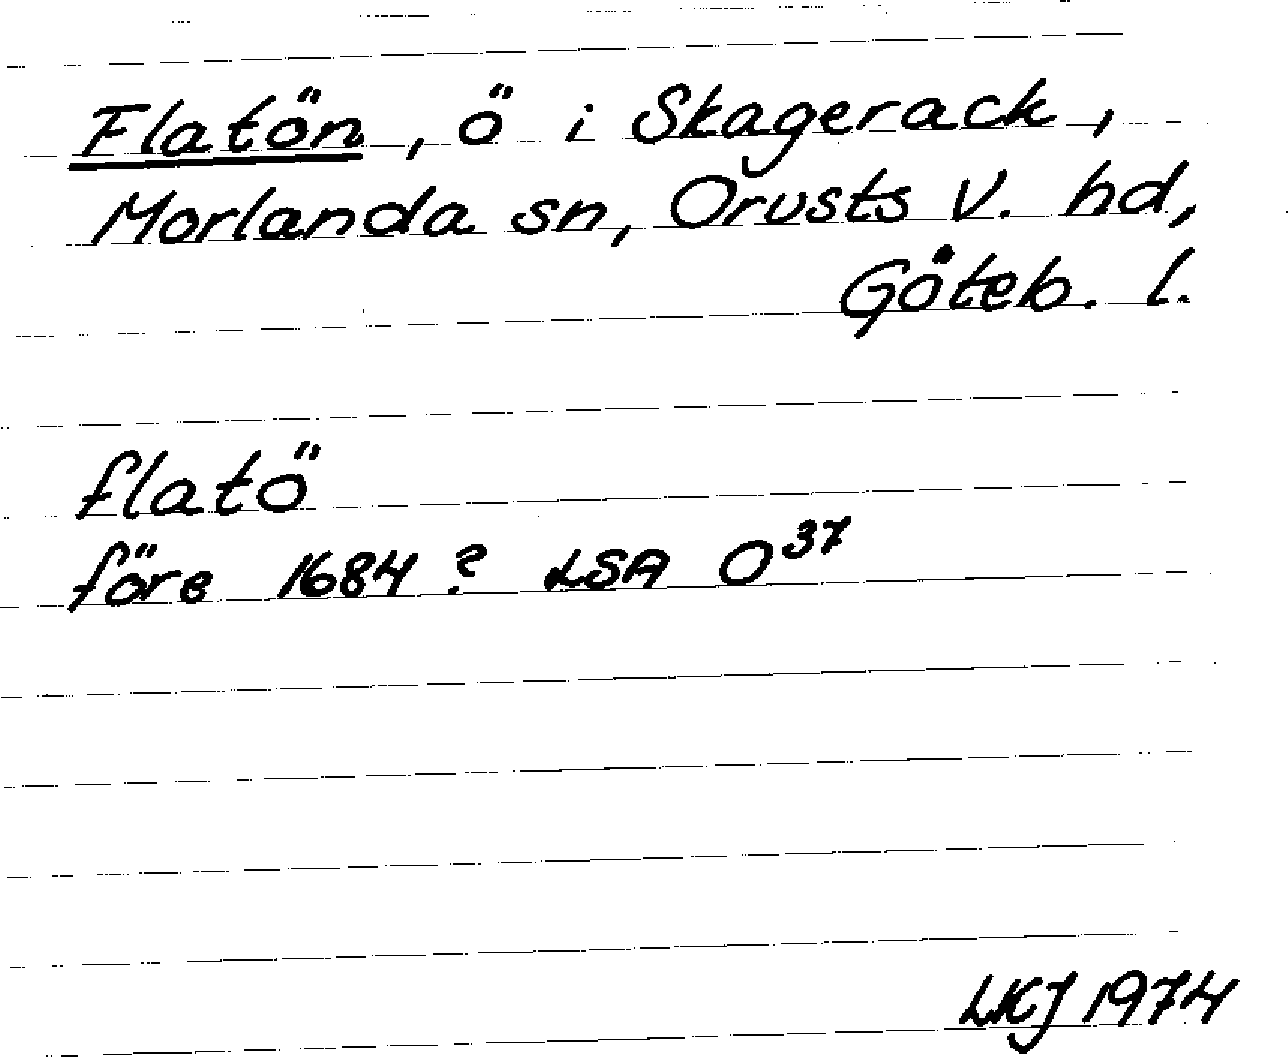 Flatön, ö i Skagerack,
Morlanda sn, Orusts V. hd,
Göteb. l.
flatö
före 1684? LSA O37
LKJ 1974